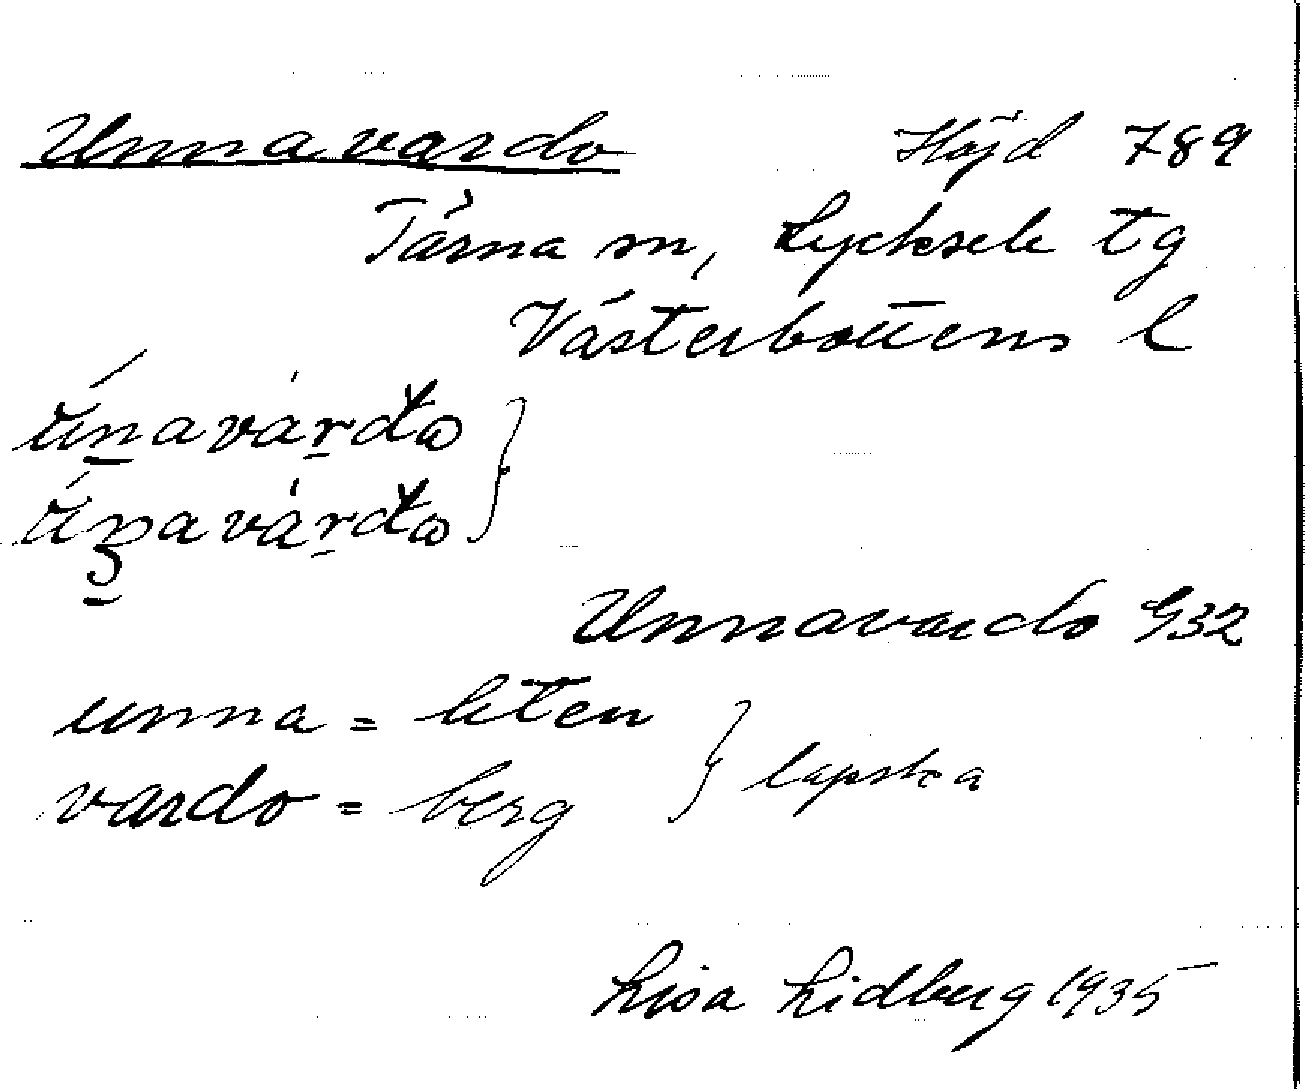 Unnavardo Höjd 789
Tärna sn, Lycksele tg
Västerbottens l
Unnavardo G32
unna = liten
vardo = berg } lapska
Lisa Lidberg 1935